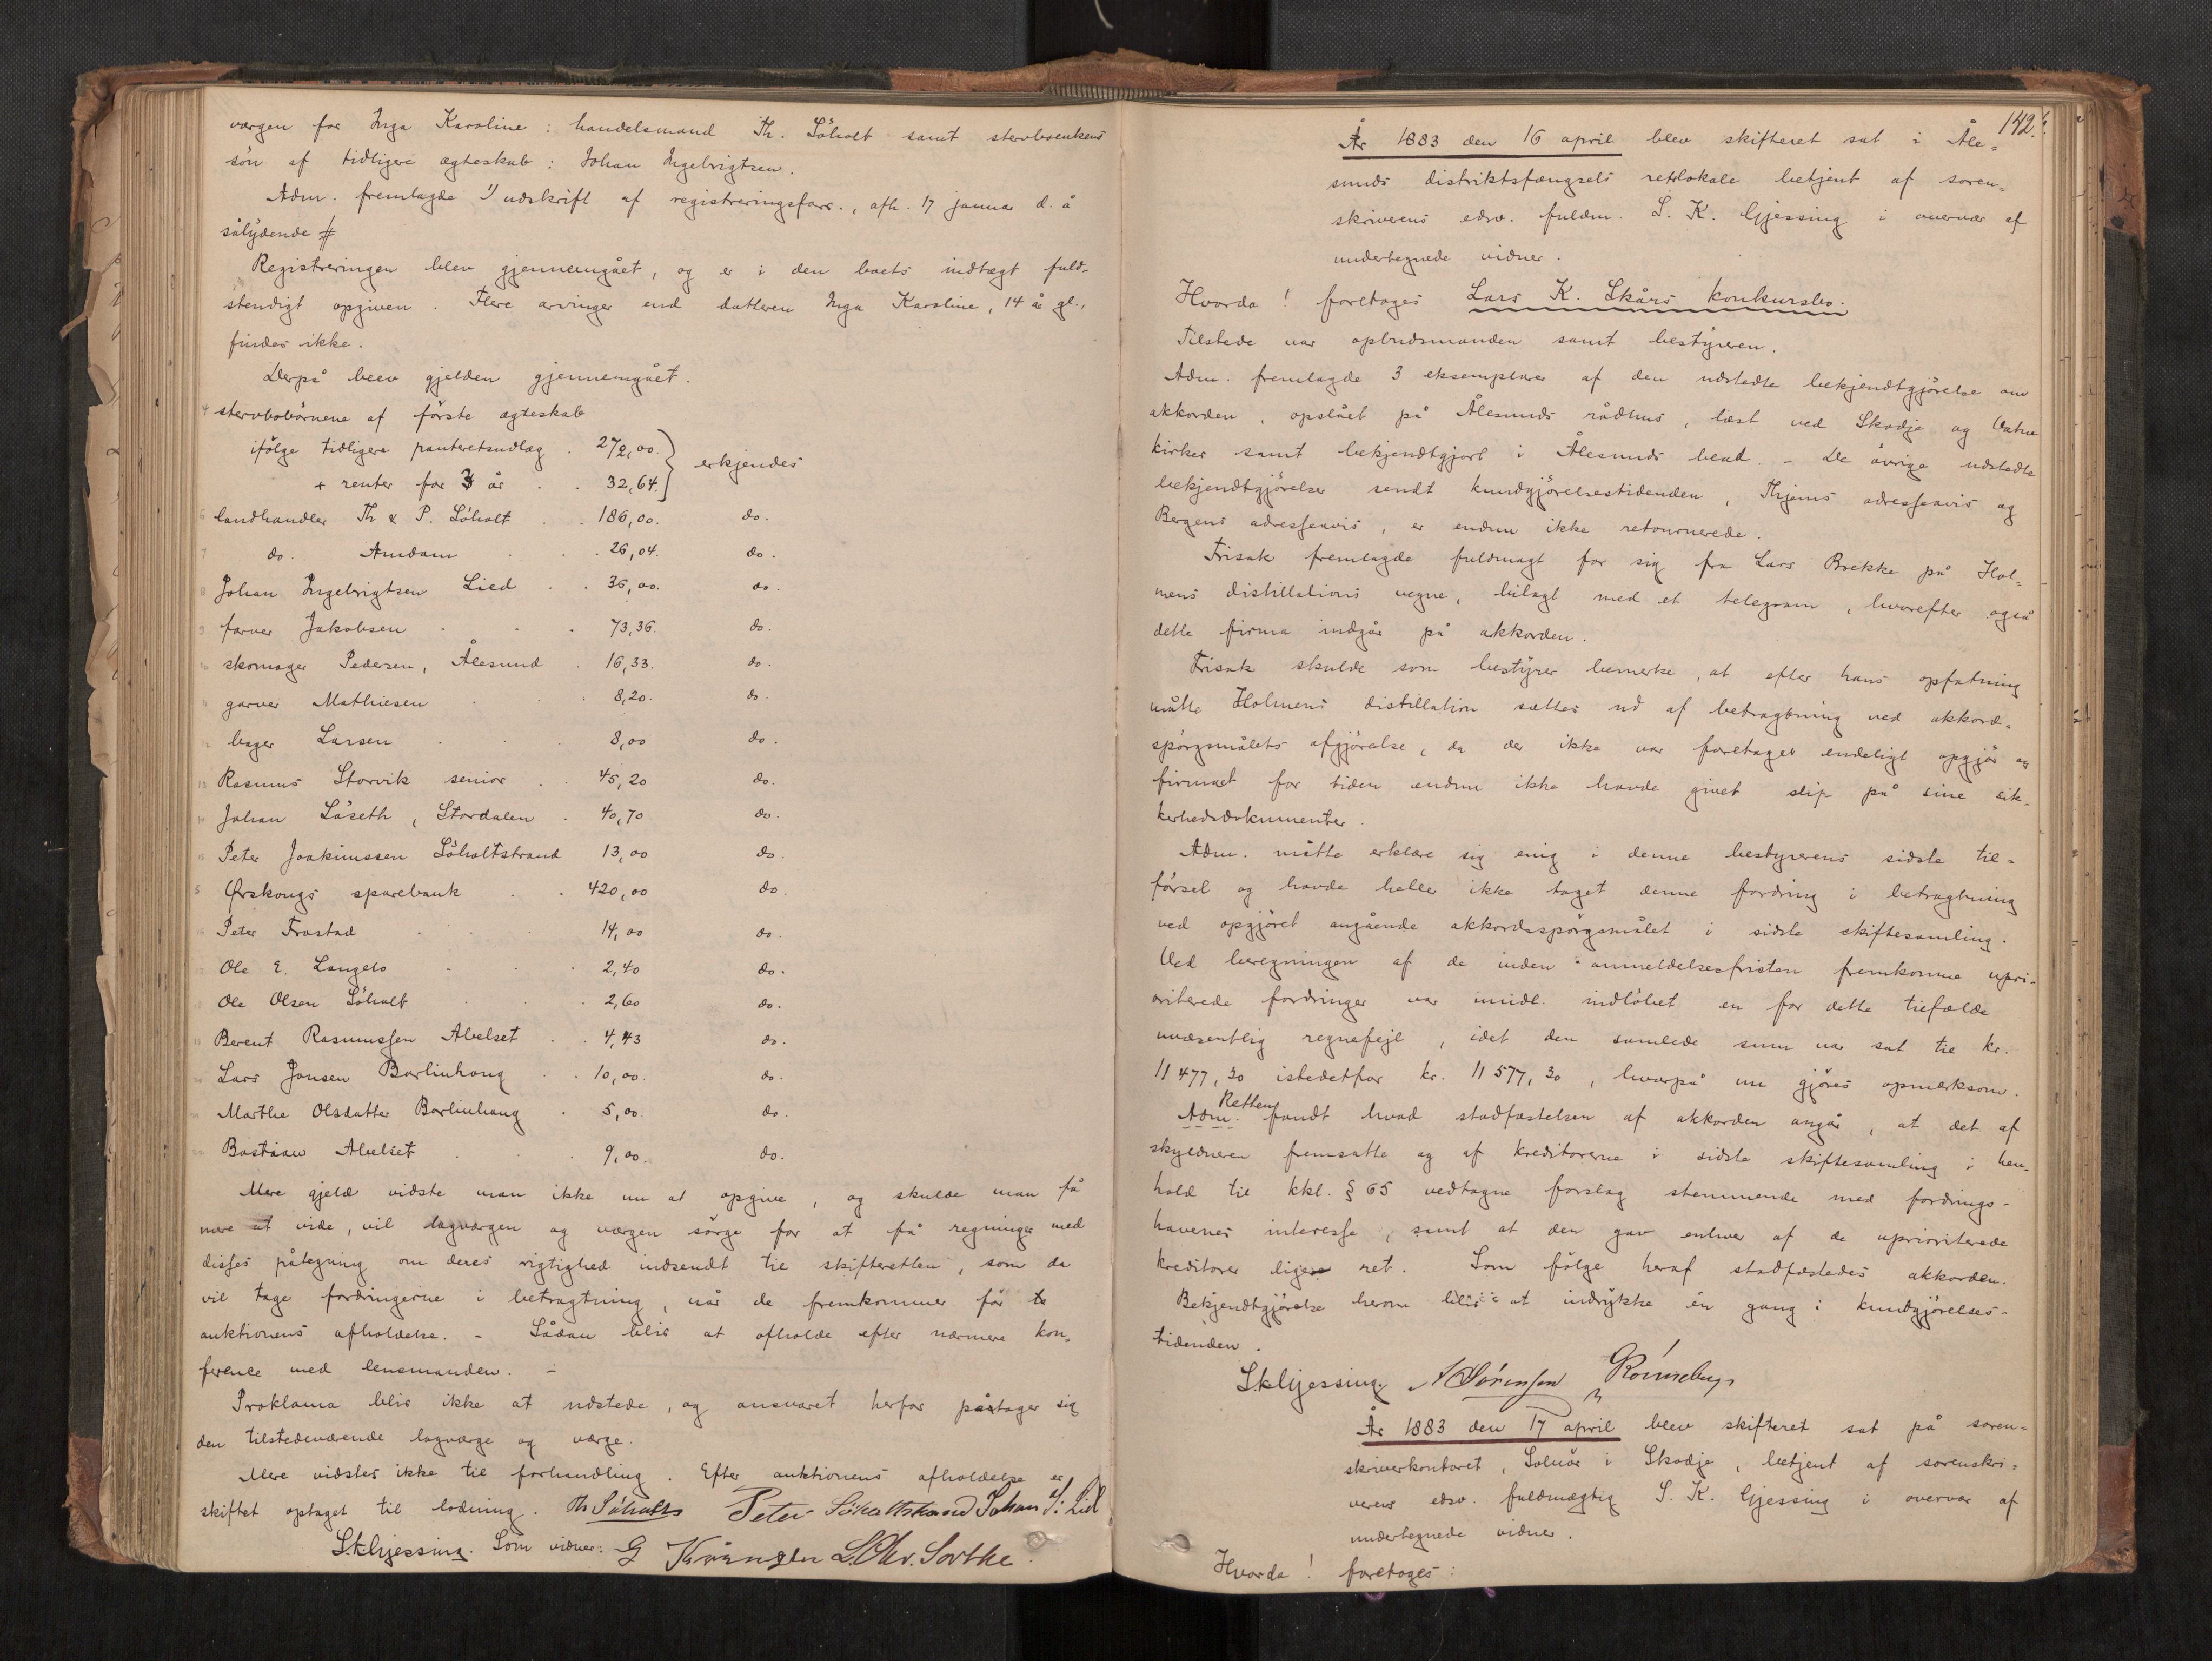 værgen for Inga Karoline: handelsmand Th. Söholt samt stervboenkens
sön af tidligere ægteskab: Johan Ingebrigtsen.
Adm. fremlagde 1) udskrift af registreringsforr., afh. 17 januar d. å
sålydende #
Registreringen blev gjennemgået, og er i den boets indtægt fuld-
stendigt opgiven. Flere arvinger end datteren Inga Karoline, 14 år gl.,
findes ikke.
Derpå blev gjelden gjennemgået.
4 stervbobörnene af förste ægteskab
ifölge tidligere panteretsudlæg . 272,00. } erkjendes
+ renter for 3 år . . 32,64.
6 landhandler Th & P. Söholt . . 186,00. do.
7 do. Amdam . . . 26,04. do.
8 Johan Ingebrigtsen Lied . . 36,00. do.
9 farver Jakobsen . . . 73,36. do.
10 skomager Pedersen, Ålesund . 16,33. do.
11 garver Mathiesen . . 8,20. do.
12 bager Larsen . . 8,00 do.
13 Rasmus Storvik senior . 45,20 do.
14 Johan Låseth, Stordalen . 40,70 do.
15 Peter Joakimssen Söholtstrand 13,00 do.
5 Ørskougs sparebank . . 420,00 do.
16 Peter Frostad . . . 14,00 do.
17 Ole E. Langelo . . . 2,40 do.
18 Ole Olsen Söholt . . . 2,60 do.
19 Berent Rasmussen Abelset . . 4,43 do.
20 Lars Jonsen Barlinhoug . . 10,00. do.
Marthe Olsdatter Barlinhaug . 5,00. do.
Bastian Abelset . . . 9,00. do.
Mere gjeld vidste man ikke nu at opgive, og skulde man få
mere at vide, vil lagværgen og værgen sörge for at få regninger med
disses påtegning om deres rigtighed indsendt til skifteretten, som da
vil tage fordringerne i betragtning, når de fremkommer för
auktionens afholdelse. – Sådan blir at afholde efter nærmere kon-
ference med lensmanden. –
Proklama blir ikke at udstede, og ansvaret herfor påtager sig
den tilstedeværende lagværge og værge.
Mere vidstes ikke til forhandling. Efter auktionens afholdelse er
skiftet optaget til lodning. Th Söholt Peter Söholtstrand Johan I: Lid
S.K.Gjessing. Som vidner: G L. Chr. Sorthe.
142.
År 1883 den 16 april blev skifteret sat i Åle-
sunds distriktsfængsels retslokale betjent af soren-
skriverens edsv. fuldm. S. K. Gjessing i overvær af
undertegnede vidner.
Hvorda! foretoges Lars K. Skårs konkursbo.
Tilstede var opbudsmanden samt bestyreren.
Adm. fremlagde 3 eksemplarer af den udstedte bekjendtgjörelse om
akkorden, opslået på Ålesunds rådhus, læst ved Skodje og Vatne
kirker samt bekjendtgjort i Ålesunds blad. – De övrige udstedte
bekjendtgjörelser sendt kundgjörelsestidenden, Thjems adresseavis og
Bergens adresseavis, er endnu ikke retournerede.
Frisak fremlagde fuldmagt for sig fra Lars Brekke på Hol-
mens distillations vegne, bilagt med et telegram, hvorefter også
dette firma indgår på akkorden.
Frisak skulde som bestyrer bemerke, at efter hans opfatning
måtte Holmens distillation sættes ud af betragtning ved akkord-
spörgsmålets afgjörelse, da der ikke var foretaget endeligt opgjör og
firmaet for tiden endnu ikke havde givet slip på sine sik-
kerhedsdokumenter.
Adm. måtte erklære sig enig i denne bestyrerens sidste til-
försel og havde heller ikke taget denne fordring i betragtning
ved opgjöret angående akkordsspörgsmålet i sidste skiftesamling.
Ved beregningen af de inden anmeldelsesfristen fremkomne upri-
oriterede fordringer var imidl. indlöbet en for dette tilfælde
uvæsentlig regnefejl, idet den samlede sum var sat til kr.
11477,30 istedetfor kr. 11577,30, hvorpå nu gjöres opmerksom.
Retten
Adm. fandt hvad stadfæstelsen af akkorden angår, at det af
skyldneren fremsatte og af kreditorerne i sidste skiftesamling i hen-
hold til kkl. § 65 vedtagne forslag stemmende med fordrings-
havernes interesse, samt at den gav enhver af de uprioriterede
kreditorer lige ret. Som fölge heraf stadfæstedes akkorden.
Bekjendtgjörelse herom blir at indrykke én gang i kundgjörelses-
tidenden.
S.K.Gjessing. A Sörensen Rönneberg
År 1883 den 17 april blev skifteret sat på soren-
skriverkontoret, Solnör i Skodje, betjent af sorenskri-
verens edsv. fuldmægtig S. K. Gjessing i overvær af
undertegnede vidner.
Hvorda! foretoges: